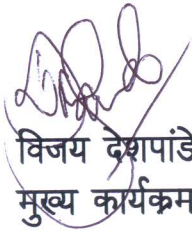 विजय देशपांडे
मुख्य कार्यक्रम